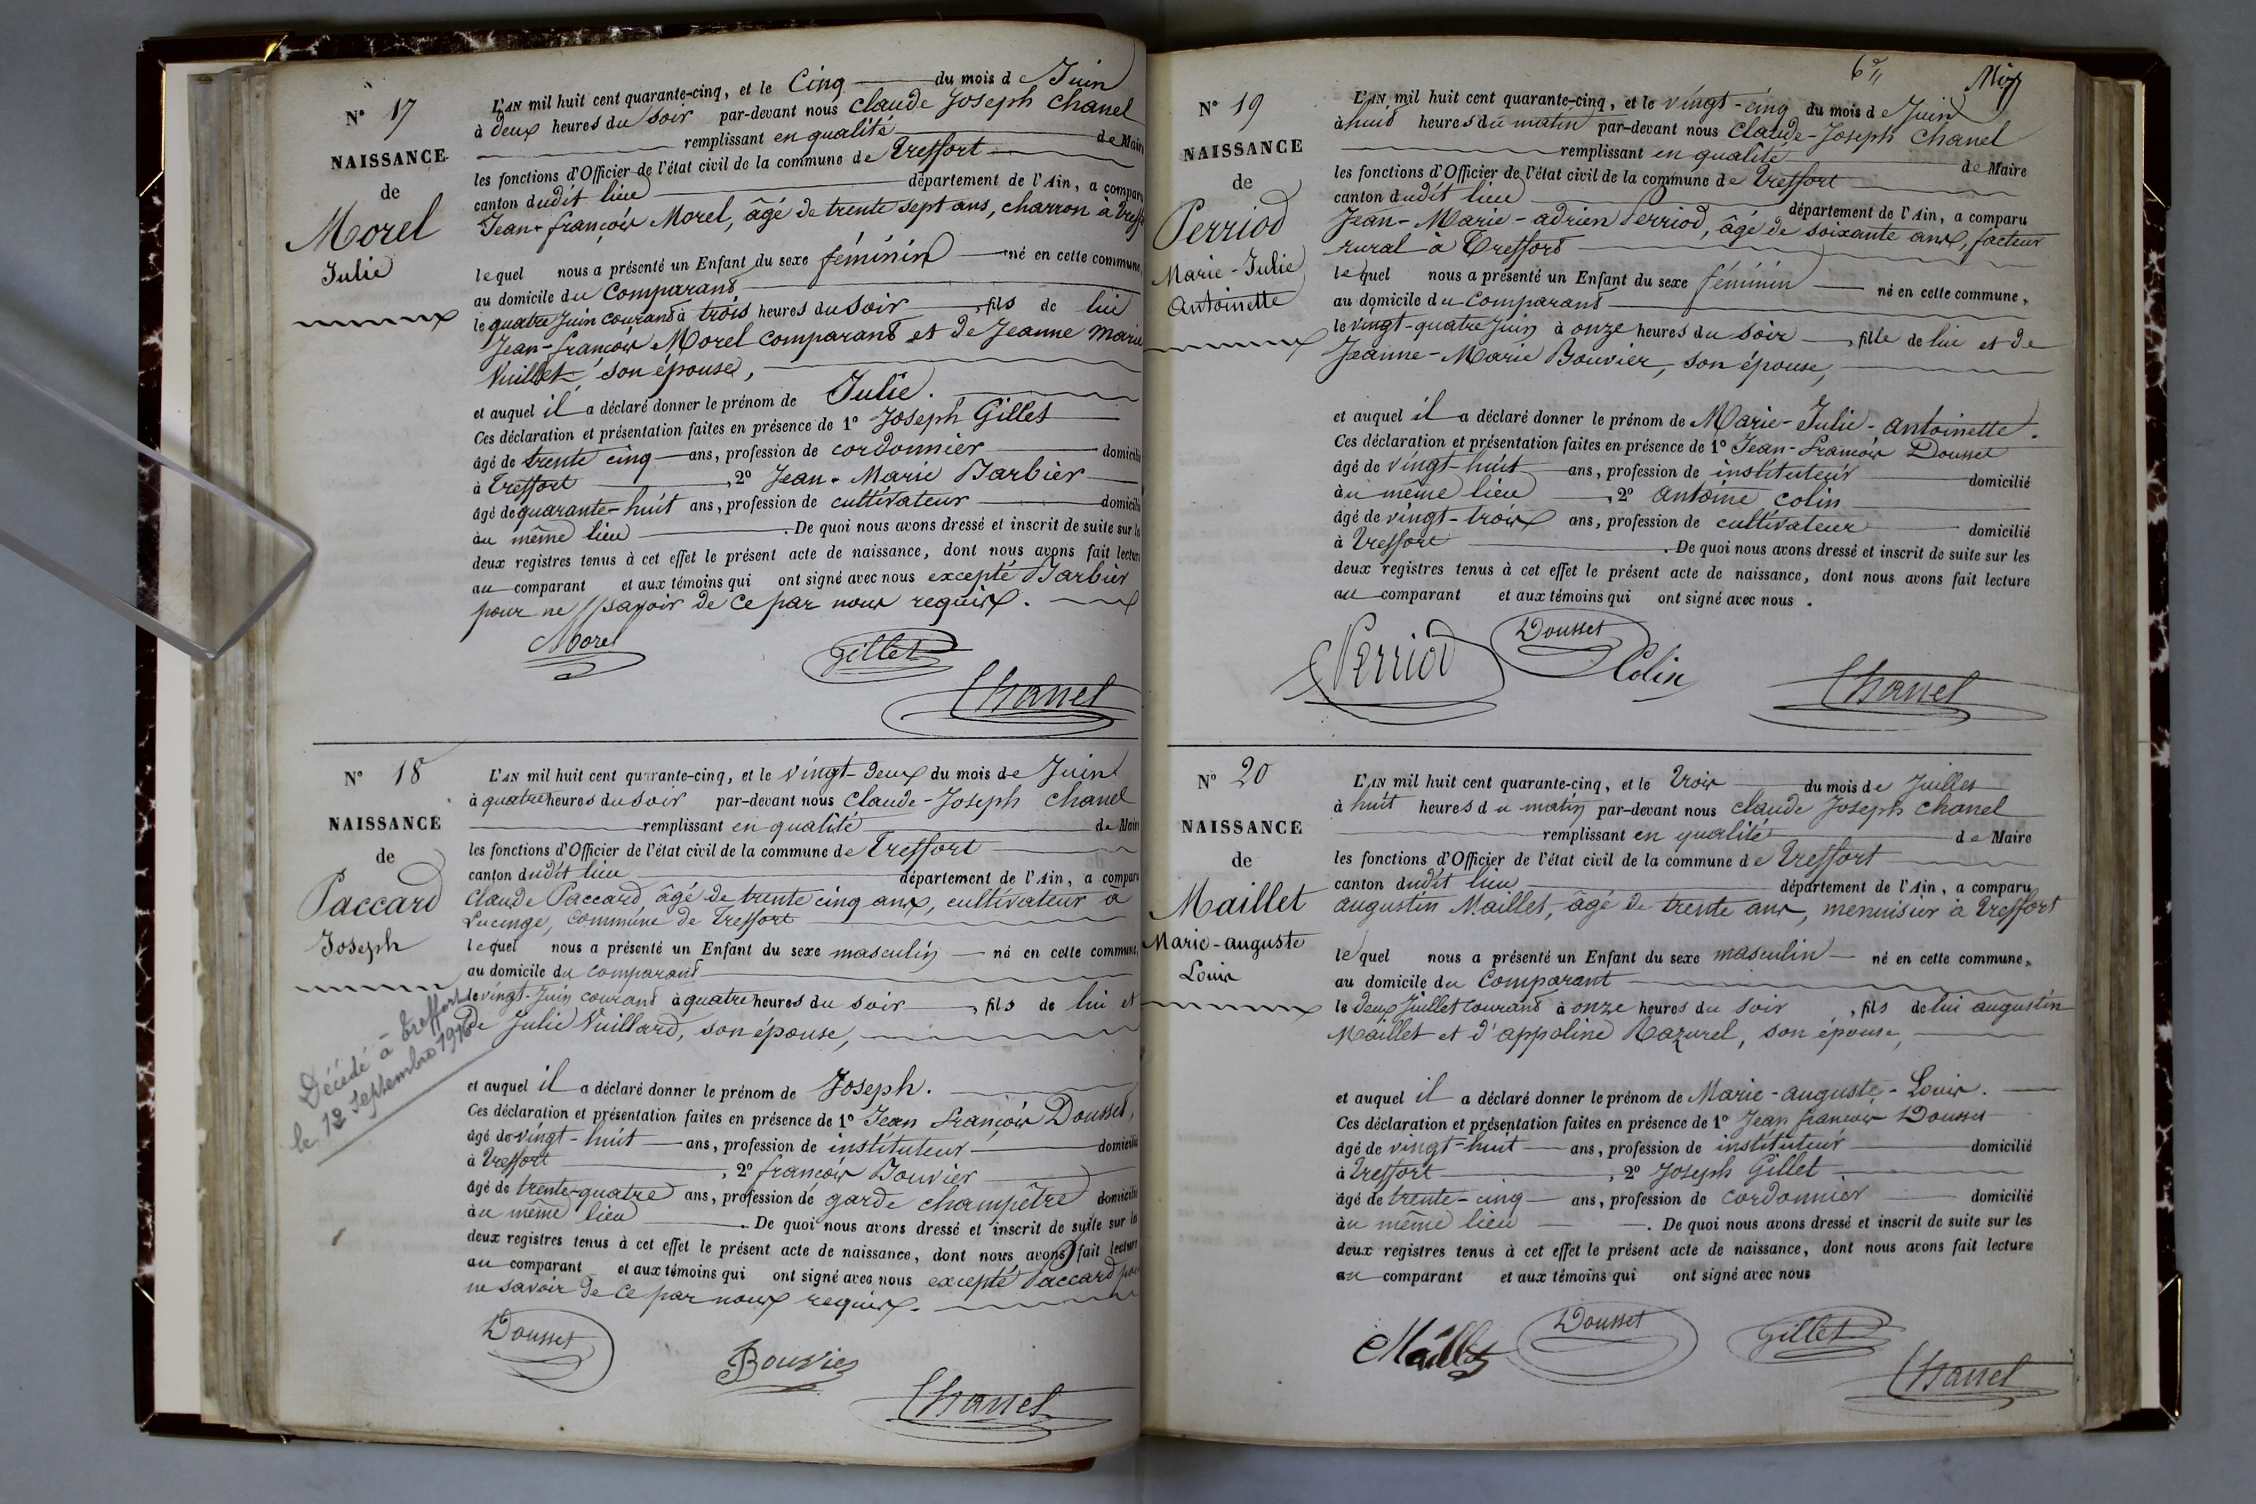 N° 17
NAISSANCE
de
Morel
Julie
L'AN mil huit cent quarante-cinq, et le Cinq du mois de Juin
à deux heures du soir par-devant nous Claude Joseph Chanel
remplissant en qualité de Maire
les fonctions d'Officier de l'état civil de la commune de Treffort
canton dudit lieu département de l'Ain, a comparu
Jean-françois Morel, âgé de trente sept ans, charron à Treffort
lequel nous a présenté un Enfant du sexe féminin né en cette commune,
au domicile du Comparant
le quatre Juin courant à trois heures du soir, fils de lui
Jean-françois Morel comparant et de Jeanne Marie
Vuillet, son épouse,
et auquel il a déclaré donner le prénom de Julie.
Ces déclaration et présentation faites en présence de 1° Joseph Gillet
âgé de trente cinq ans, profession de cordonnier domicilié
à Treffort, 2° Jean-Marie Barbier
âgé de quarante-huit ans, profession de cultivateur domicilié
au même lieu. De quoi nous avons dressé et inscrit de suite sur les
deux registres tenus à cet effet le présent acte de naissance, dont nous avons fait lecture
au comparant et aux témoins qui ont signé avec nous excepté Barbier
pour ne savoir de ce par nous requis.
Morel
Gillet
Chanel
N° 18
NAISSANCE
de
Paccard
Joseph
Décédé à Treffort
le 12 Septembre 1916
L'AN mil huit cent quarante-cinq, et le vingt-deux du mois de Juin
à quatre heures du soir par-devant nous Claude-Joseph Chanel
remplissant en qualité de Maire
les fonctions d'Officier de l'état civil de la commune de Treffort
canton dudit lieu département de l'Ain, a comparu
Claude Paccard, âgé de trente cinq ans, cultivateur à
Lucinge, commune de Treffort
lequel nous a présenté un Enfant du sexe masculin né en cette commune,
au domicile du comparant
le vingt-Juin courant à quatre heures du soir, fils de lui et
de Julie Vuillard, son épouse,
et auquel il a déclaré donner le prénom de Joseph.
Ces déclaration et présentation faites en présence de 1° Jean françois Dousset,
âgé de vingt-huit ans, profession de instituteur domicilié
à Treffort, 2° françois Bouvier
âgé de trente-quatre ans, profession de garde champêtre domicilié
au même lieu. De quoi nous avons dressé et inscrit de suite sur les
deux registres tenus à cet effet le présent acte de naissance, dont nous avons fait lecture
au comparant et aux témoins qui ont signé avec nous excepté Paccard pour
ne savoir de ce par nous requis.
Dousset
Bouvier
Chanel
N° 19
NAISSANCE
de
Perriod
Marie-Julie
Antoinette
L'AN mil huit cent quarante-cinq, et le vingt-cinq du mois de Juin
à huit heures du matin par-devant nous Claude-Joseph Chanel
remplissant en qualité de Maire
les fonctions d'Officier de l'état civil de la commune de Treffort
canton dudit lieu département de l'Ain, a comparu
Jean-Marie-adrien Perriod, âgé de soixante ans, facteur
rural à Treffort
lequel nous a présenté un Enfant du sexe féminin né en cette commune,
au domicile du comparant
le vingt-quatre Juin à onze heures du soir, fille de lui et de
Jeanne-Marie Bouvier, son épouse,
et auquel il a déclaré donner le prénom de Marie-Julie-antoinette.
Ces déclaration et présentation faites en présence de 1° Jean-françois Dousset
âgé de vingt-huit ans, profession de instituteur domicilié
au même lieu, 2° antoine colin
âgé de vingt-trois ans, profession de cultivateur domicilié
à Treffort. De quoi nous avons dressé et inscrit de suite sur les
deux registres tenus à cet effet le présent acte de naissance, dont nous avons fait lecture
au comparant et aux témoins qui ont signé avec nous.
Perriod
Dousset
Colin
Chanel
N° 20
NAISSANCE
de
Maillet
Marie-auguste
Louis
L'AN mil huit cent quarante-cinq, et le Trois du mois de Juillet
à huit heures du matin par-devant nous Claude Joseph Chanel
remplissant en qualité de Maire
les fonctions d'Officier de l'état civil de la commune de Treffort
canton dudit lieu département de l'Ain, a comparu
augustin Maillet, âgé de trente ans, menuisier à Treffort
lequel nous a présenté un Enfant du sexe masculin né en cette commune,
au domicile du Comparant
le deux Juillet courant à onze heures du soir, fils de lui augustin
Maillet et d'appoline Razurel, son épouse,
et auquel il a déclaré donner le prénom de Marie-auguste-Louis.
Ces déclaration et présentation faites en présence de 1° Jean françois Dousset
âgé de vingt-huit ans, profession de instituteur domicilié
à Treffort, 2° Joseph Gillet
âgé de trente-cinq ans, profession de cordonnier domicilié
au même lieu. De quoi nous avons dressé et inscrit de suite sur les
deux registres tenus à cet effet le présent acte de naissance, dont nous avons fait lecture
au comparant et aux témoins qui ont signé avec nous
Maillet
Dousset
Gillet
Chanel